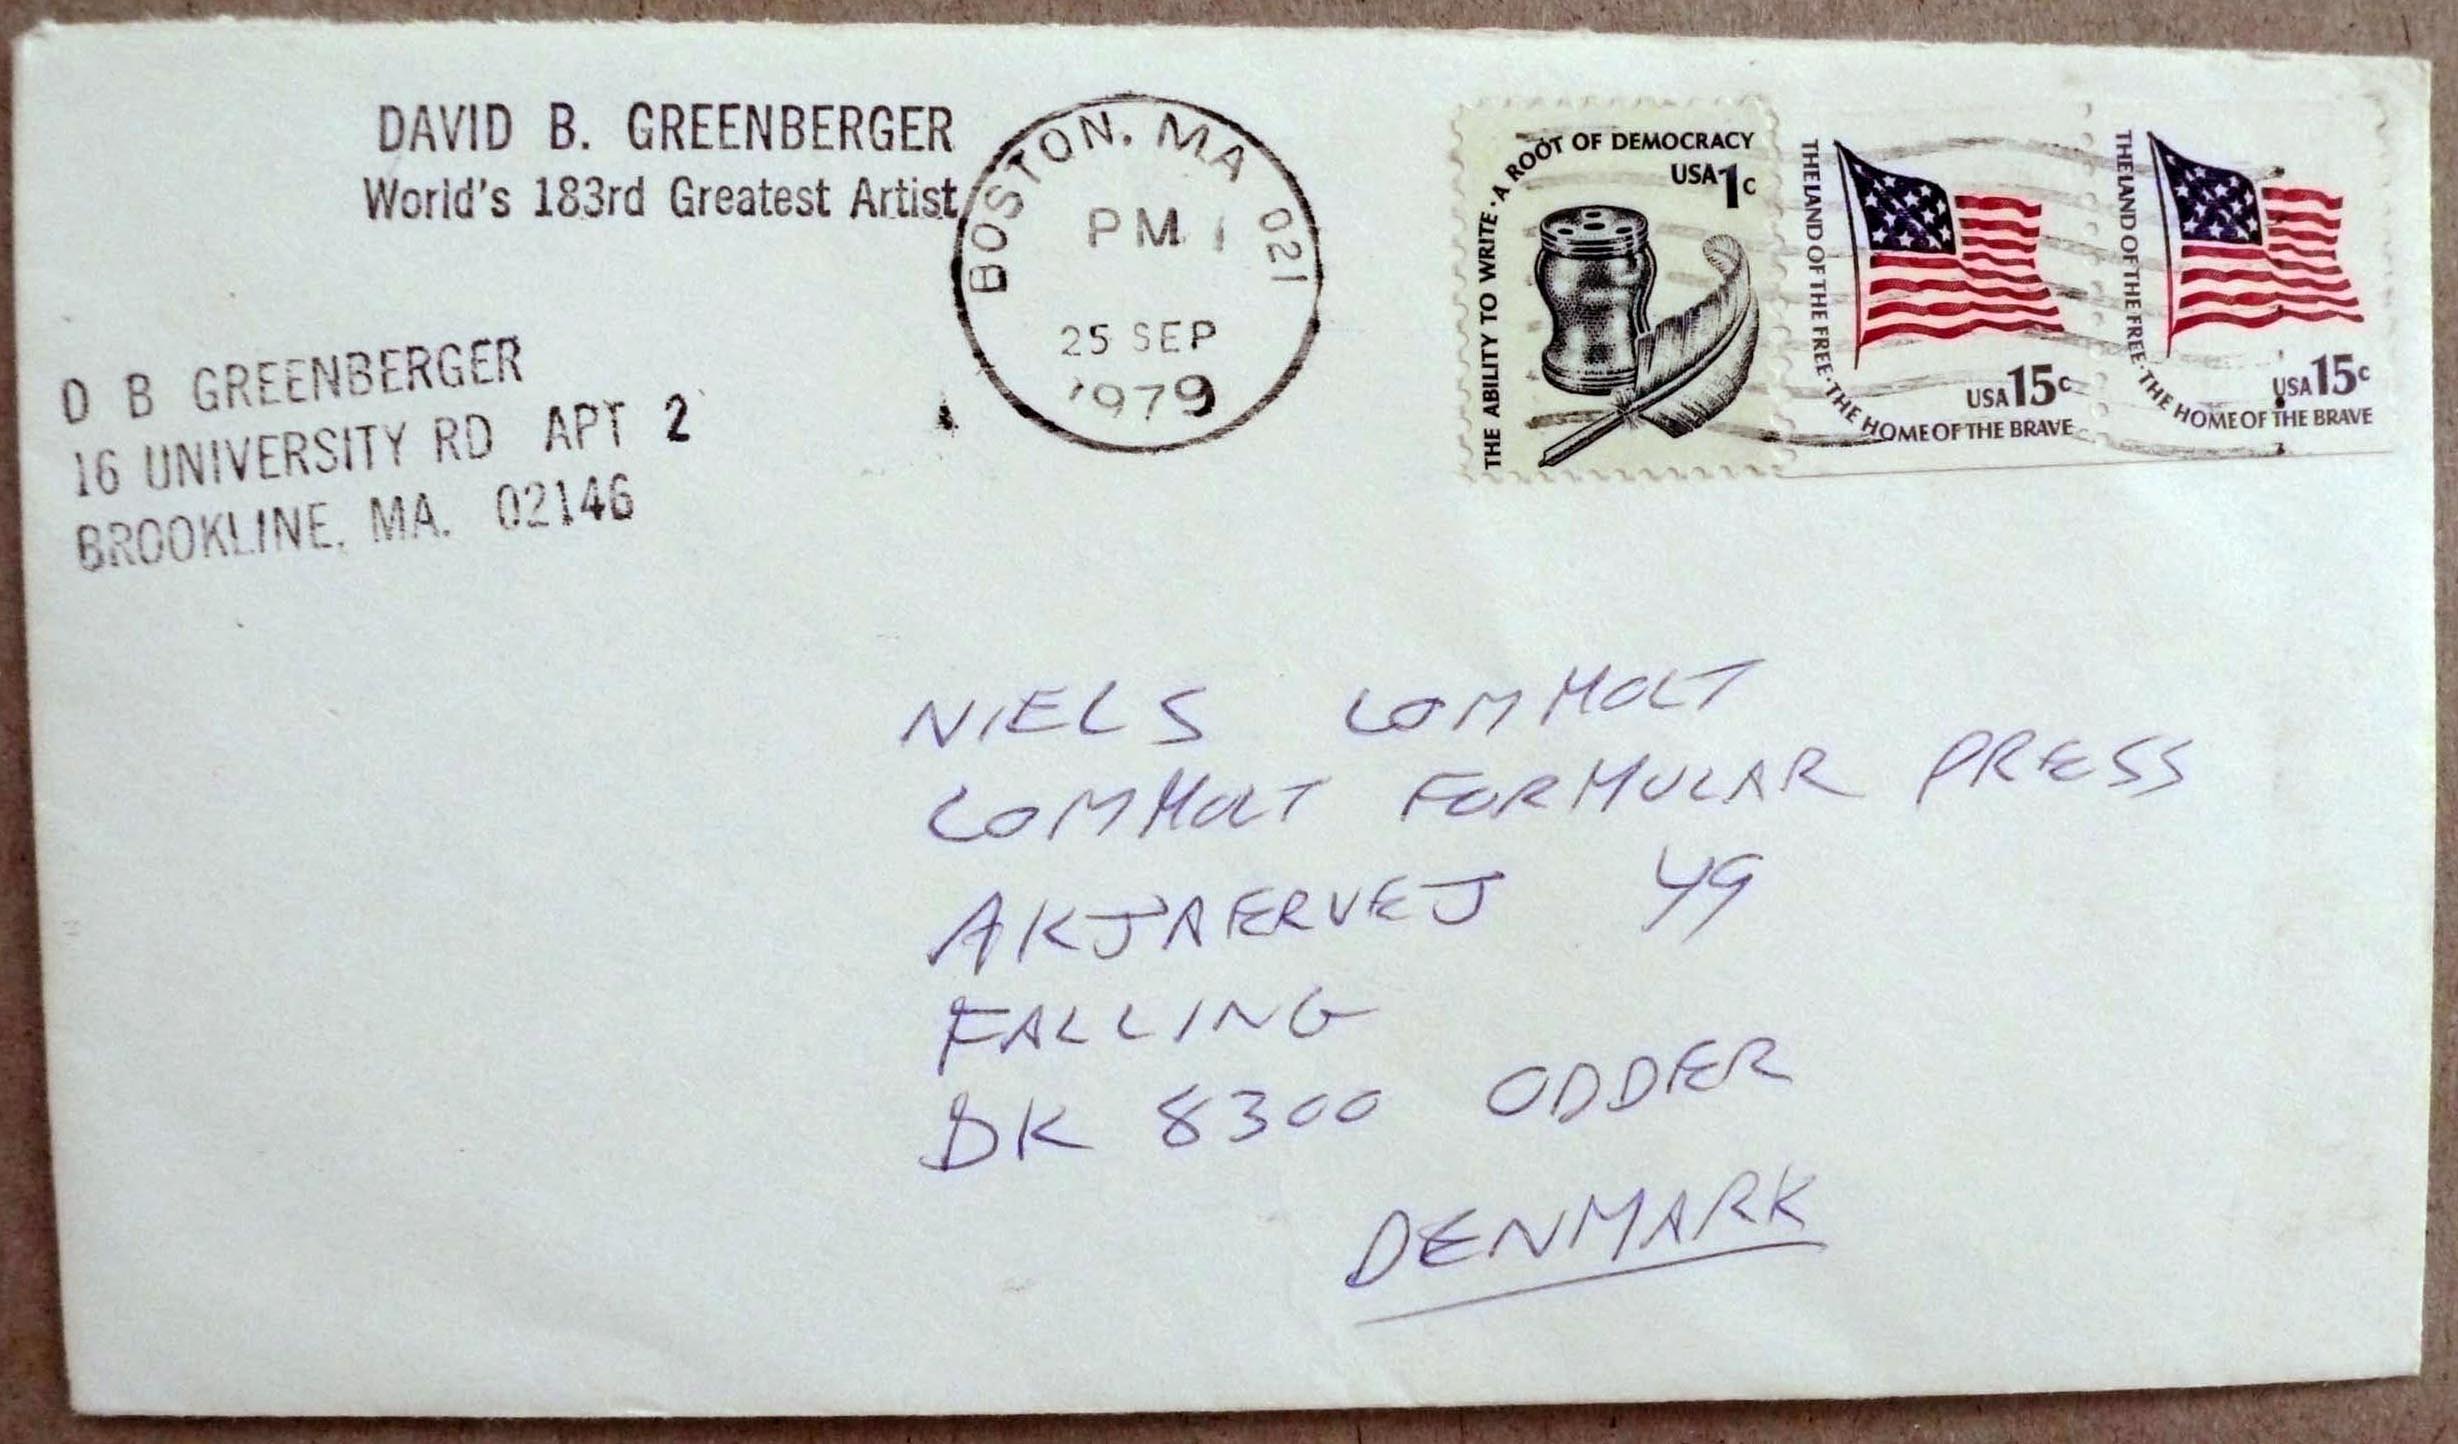 DAVID B. GREENBERGER
World's 183rd Greatest Artist
D B GREENBERGER
16 UNIVERSITY RD APT 2
BROOKLINE, MA. 02146
BOSTON, MA 021
PM
25 SEP
1979
THE ABILITY TO WRITE · A ROOT OF DEMOCRACY
USA 1c
THE LAND OF THE FREE · THE HOME OF THE BRAVE
USA 15c
THE LAND OF THE FREE · THE HOME OF THE BRAVE
USA 15c
NIELS LOMHOLT
LOMHOLT FORMULAR PRESS
AKJAERVEJ 49
FALLING
DK 8300 ODDER
DENMARK